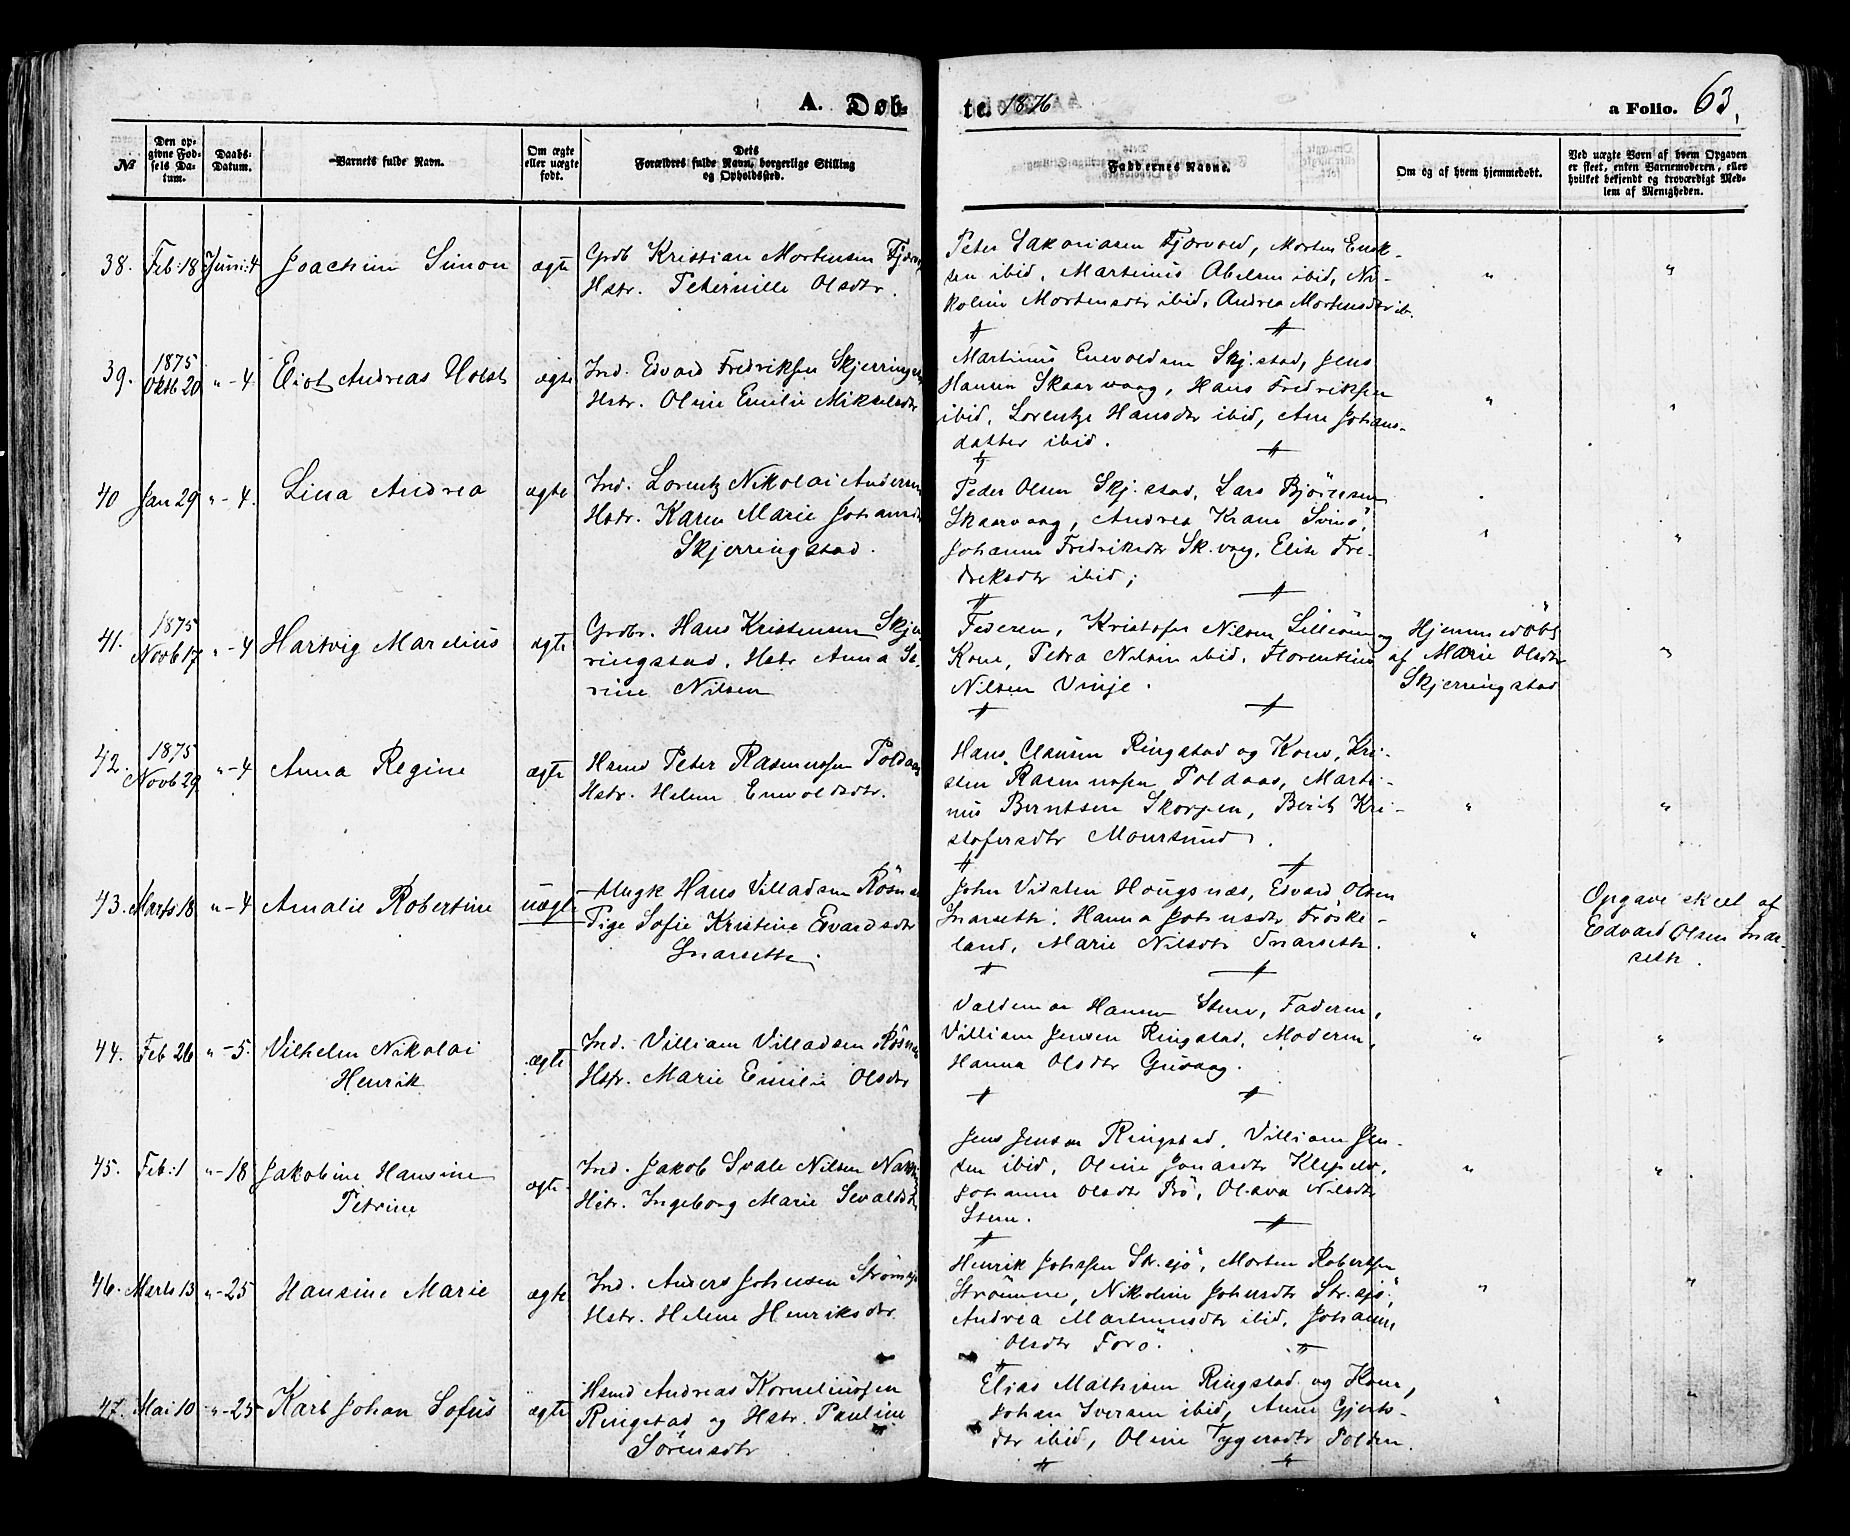 A. Døb-
te. 1876
a Folio. 63,
№
Den op-
givne Fød-
sels Da-
tum.
Daabs-
Datum.
Barnets fulde Navn.
Om ægte
eller uægte
født.
Dets
Forældres fulde Navn, borgerlige Stilling
og Opholdssted.
Faddernes Navne.
Om og af hvem hjemmedøbt.
Ved uægte Børn af hvem Opgaven
er skeet, enten Barnemoderen, eller
hvilket bekjendt og troværdigt Med-
lem af Menigheden.
38. Feb: 18 Juni: 4 Joachim Simon ægte
Grdb Kristian Mortensen
Hstr. Peternille Olsdtr.
Peter Sakariasen Fjærvold, Morten Enok-
sen ibid, Martinus Abelsen ibid, Ni-
koline Mortensdtr ibid, Andrea Mortensdtr ib.
" "
39. 1875
Oktb 20 " - 4 Eliot Andreas Holst ægte
Ind. Edvard Fredriksen
Hstr. Oline Emilie Mikkelsdtr
Martinus Enevoldsen Skj.stad, Jens
Hansen Skaarvaag, Hans Fredriksen
ibid, Lorentze Hansdtr ibid, Ane Johans-
datter ibid.
" "
40 Jan 29 " - 4. Lina Andrea ægte
Ind. Lorentz Nikolai Andersen
Hstr. Karen Marie
Skjerringstad.
Peder Olsen Skj.stad, Lars Bjørnsen
Skaarvaag, Andrea Krane Svinö,
Johanne Fredriksdtr Sk.vaag, Elise Fre-
driksdtr ibid;
" "
41. 1875
Novb 17 " - 4 Hartvig Marelius ægte
Grdbr. Hans Kristensen Skjer-
ringstad, Hstr Anna Se-
rine Nilsen
Faderen, Kristofer Nilsen og
Kone, Petra Nilsen ibid, Florentine
Nilsen Vinje.
Hjemmedöbt
af Marie Olsdtr
Skjerringstad
"
42. 1875
Novb 29 " - 4 Anna Regine ægte
Hsmd Peter Rasmussen Poldaas
Hstr. Helene Enevoldsdtr.
Hans Clausen Ringstad og Kone, Kri-
sten Rasmussen Poldaas, Marti-
nus Berntsen Skorpen, Berit Kri-
stofersdtr Moursund.
" "
43. Marts 18 " - 4 Amalie Robertine uægte
Ungk Hans Villadsen
Pige Sofie Kristine Edvardsdtr
John Vidsten Hougsnæs, Edvard Olsen
Hanna Johnsdtr Fröske-
land, Marie Nilsdtr
"
Opgave skeet af
Edvard Olsen Inar-
sette.
44. Feb 26 " - 5. Vilhelm Nikolai
Henrik ægte
Ind. Villiam Villadsen
Hstr. Marie Emilie Olsdtr
Valdemar Hansen Stene, Faderen,
Villiam Jensen Ringstad, Moderen,
Hanna Olsdtr Guvaag.
" "
45. Feb: 1 " - 18 Jakobine Hansine
Petrine ægte
Ind. Jakob Svale Nilsen
Hstr. Ingeborg Marie
Jens Jensen Ringstad, Villiam Jen-
sen ibid, Oline Jonasdtr
Johanne Olsdtr Bö, Olava Nilsdtr
Stene.
" "
46. Marts 13 " - 25 Hansine Marie ægte
Ind. Anders Johnsen
Hstr. Helene Henriksdtr
Henrik Johnsen Str.sjö, Morten Robertsen
Strömme, Nikoline Johnsdtr Str.sjö,
Andrea Martinusdtr ibid, Johanne
Olsdtr Forö.
" "
47. Mai 10 " - 25 Karl Johan Sofus ægte
Hsmd Andreas Korneliussen
Ringstad og Hstr. Pauline
Sörensdtr
Elias Mathisen Ringstad og Kone,
Johan Iversen ibid, Anne Gjerts-
dtr ibid, Oline Tygesdtr Polden.
" "